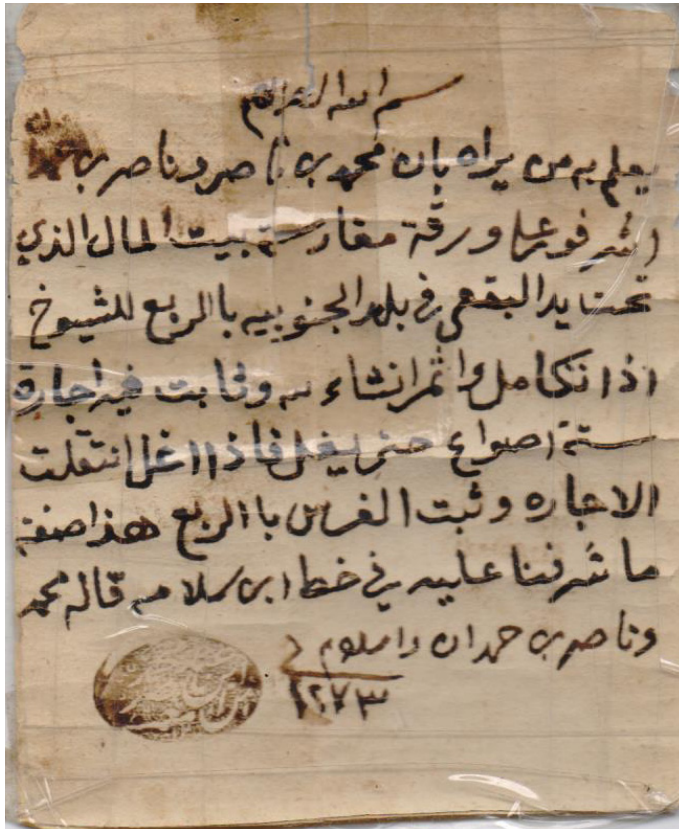 بسم الله الرحمن الرحيم
يعلم به من يراه بان محمد بن ناصر وناصر بن
اشرفو على ورقة مغارسة بيت المال الذي
تحت يد البقعي في بلد الجنوبيه بالربع للشيوخ
اذا تكامل واثمر انشاء الله وثابت فيه اجارة
ستة اصواع حتى يغل فاذا اغل انتقلت
الاجاره وثبت الغرس باالربع هذا صفة
ما شرفنا عليه في خط ابن سلامه قاله محمد
وناصر بن حمدان والسلام في
١٢٧٣